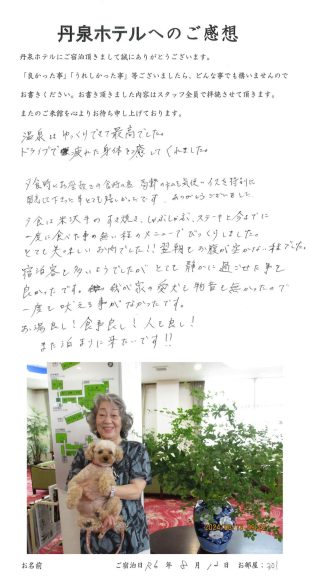 丹泉ホテルへのご感想
丹泉ホテルにご宿泊頂きまして誠にありがとうございます。
「良かった事」「うれしかった事」等ございましたら、どんな事でも構いませんので
お書きください。お書き頂きました内容はスタッフ全員で拝読させて頂きます。
またのご来館を心よりお待ち申し上げております。
温泉はゆっくりできて最高でした。
ドライブで疲れた身体を癒してくれました。
夕食時にお座敷での食時の為、高齢の私を気使いイスを特別に
用意して下さった事とても嬉しかったです。ありがとうございました
夕食は米沢牛のすき焼き、しゃぶしゃぶ、ステーキと今までに
一度に食べた事の無い様のメニューでびっくりしました。
とても美味しいお肉でした!!翌朝もお腹が空かない様でした。
宿泊客も多いようでしたがとても静かに過ごせた事も
良かったです。我が家の愛犬も物音も無かったので
一度も吠える事がなかったです。
お湯良し!食事良し!人も良し!
また泊まりに来たいです!!
お名前 ご宿泊日 R6年 8月 12日 お部屋:301